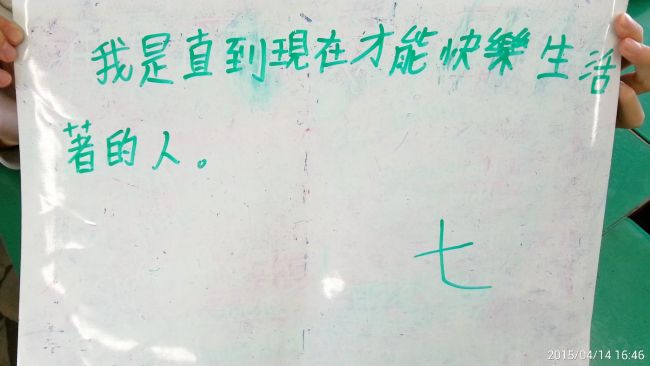 我是直到現在才能快樂生活
著的人。
七
2015/04/14 16:46